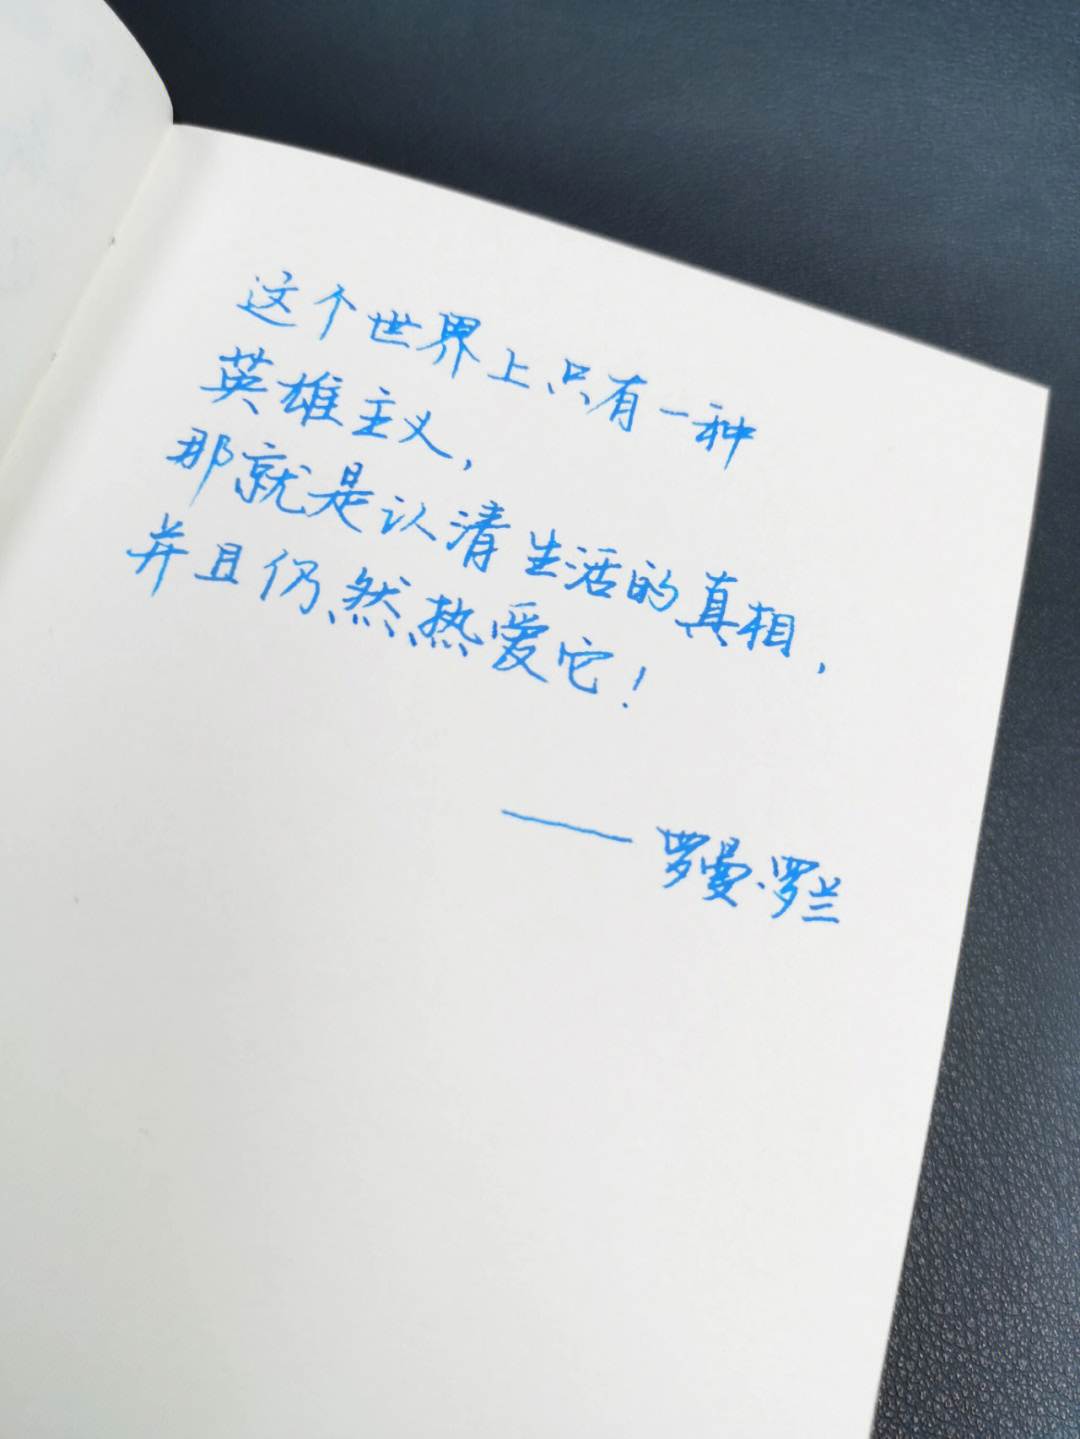 这个世界上只有一种
英雄主义，
那就是认清生活的真相，
并且仍然热爱它！
——罗曼·罗兰